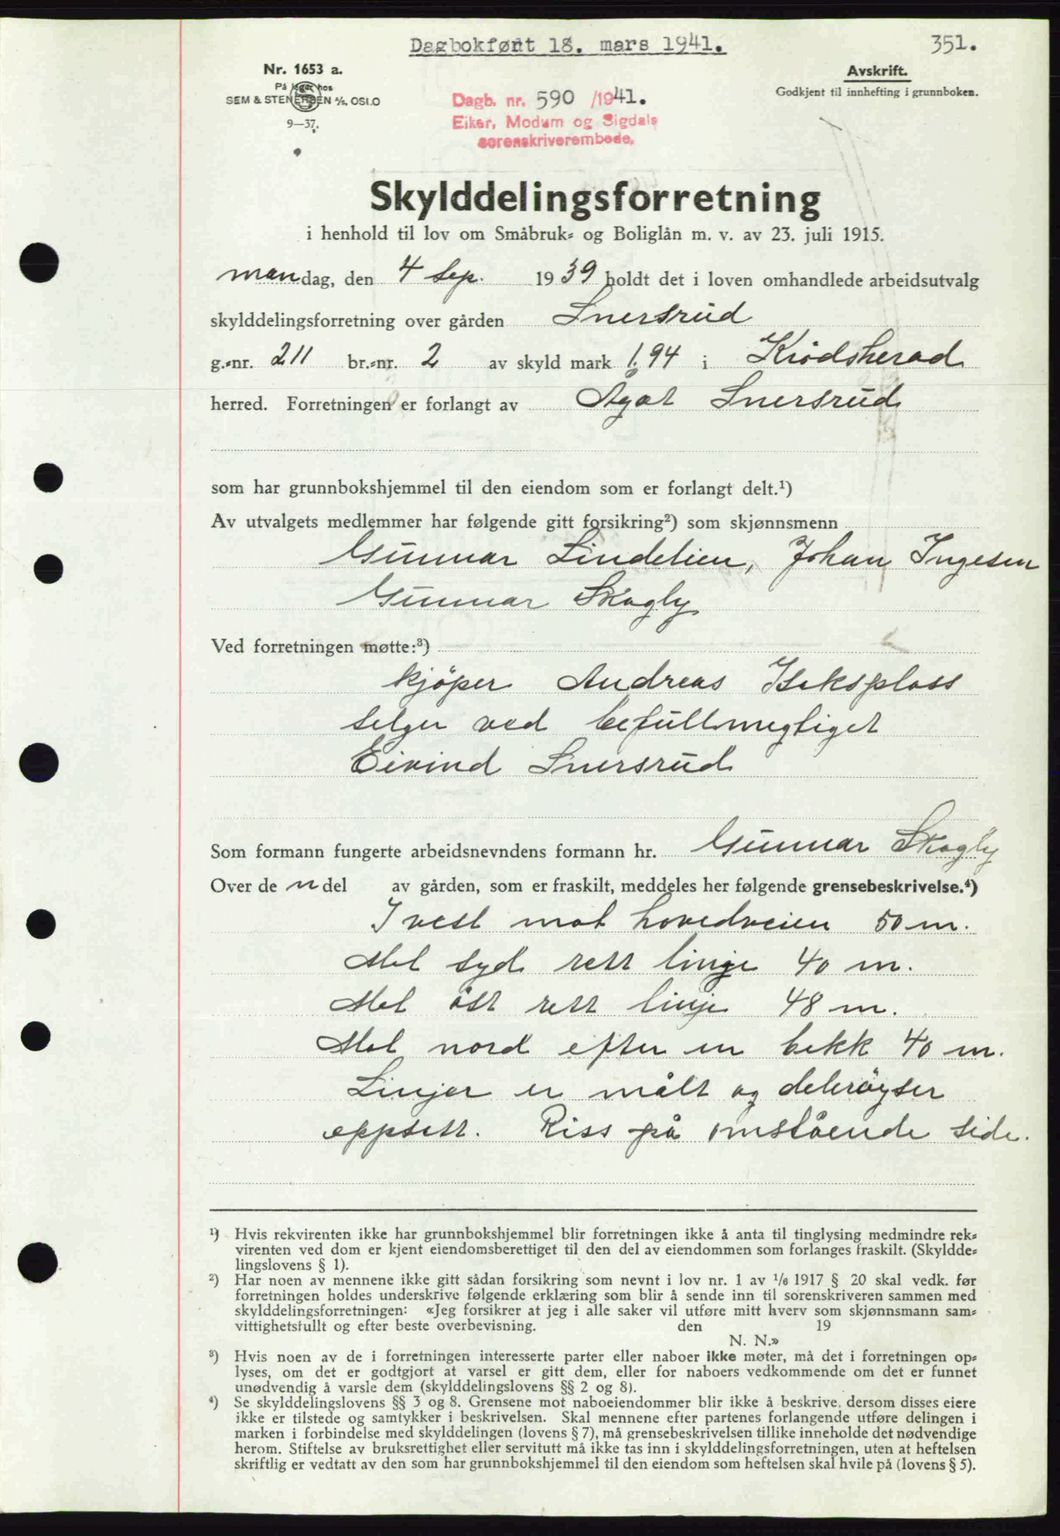 Dagbokført 18. mars 1941.
351.
Nr. 1653 a.
På lager hos
SEM & STENERSEN A/S, OSLO
9—37.
Avskrift.
Godkjent til innhefting i grunnboken.
Dagb. nr. 590 /1941.
Eiker, Modum og Sigdals
sorenskriverembede.
Skylddelingsforretning
i henhold til lov om Småbruk- og Boliglån m. v. av 23. juli 1915.
mandag, den 4 Sep. 1939 holdt det i loven omhandlede arbeidsutvalg
skylddelingsforretning over gården Snersrud
g.-nr. 211 br.-nr. 2 av skyld mark 1.94 i Krødsherad
herred. Forretningen er forlangt av Ågot Snersrud
som har grunnbokshjemmel til den eiendom som er forlangt delt.¹)
Av utvalgets medlemmer har følgende gitt forsikring²) som skjønnsmenn
Gunnar Lindelien, Johan Ingesen
Gunnar Skogly
Ved forretningen møtte:³)
kjöper Andreas
selger ved befullmegtiget
Eivind Snersrud
Som formann fungerte arbeidsnevndens formann hr. Gunnar Skogly
Over de n del av gården, som er fraskilt, meddeles her følgende grensebeskrivelse.⁴)
I vest mot hovedveien 50 m.
Mot syd rett linje 40 m.
Mot öst rett linje 48 m.
Mot nord efter en bekk 40 m.
Linjer er målt og deleröyser
oppsett. Riss på omstående side.
¹) Hvis rekvirenten ikke har grunnbokshjemmel blir forretningen ikke å anta til tinglysing medmindre rek-
virenten ved dom er kjent eiendomsberettiget til den del av eiendommen som forlanges fraskilt. (Skyldde-
lingslovens § 1).
²) Har noen av mennene ikke gitt sådan forsikring som nevnt i lov nr. 1 av 1/6 1917 § 20 skal vedk. før
forretningen holdes underskrive følgende erklæring som blir å sende inn til sorenskriveren sammen med
skylddelingsforretningen: «Jeg forsikrer at jeg i alle saker vil utføre mitt hverv som skjønnsmann sam-
vittighetsfullt og efter beste overbevisning. den 19
N. N.»
³) Hvis noen av de i forretningen interesserte parter eller naboer ikke møter, må det i forretningen op-
lyses, om det er godtgjort at varsel er gitt dem, eller for naboers vedkommende om det er funnet
unødvendig å varsle dem (skylddelingslovens §§ 2 og 8).
⁴) Se skylddelingslovens §§ 3 og 8. Grensene mot naboeiendommer blir ikke å beskrive, dersom disses eiere
ikke er tilstede og samtykker i beskrivelsen. Skal mennene efter partenes forlangende utføre delingen i
marken i forbindelse med skylddelingen (lovens § 7), må grensebeskrivelsen tillike inneholde det nødvendige
herom. Stiftelse av bruksrettighet eller servitutt må ikke tas inn i skylddelingsforretningen, uten at heftelsen
skriftlig er vedtatt av den som har grunnbokshjemmel til den eiendom som heftelsen skal hvile på (lovens § 5).